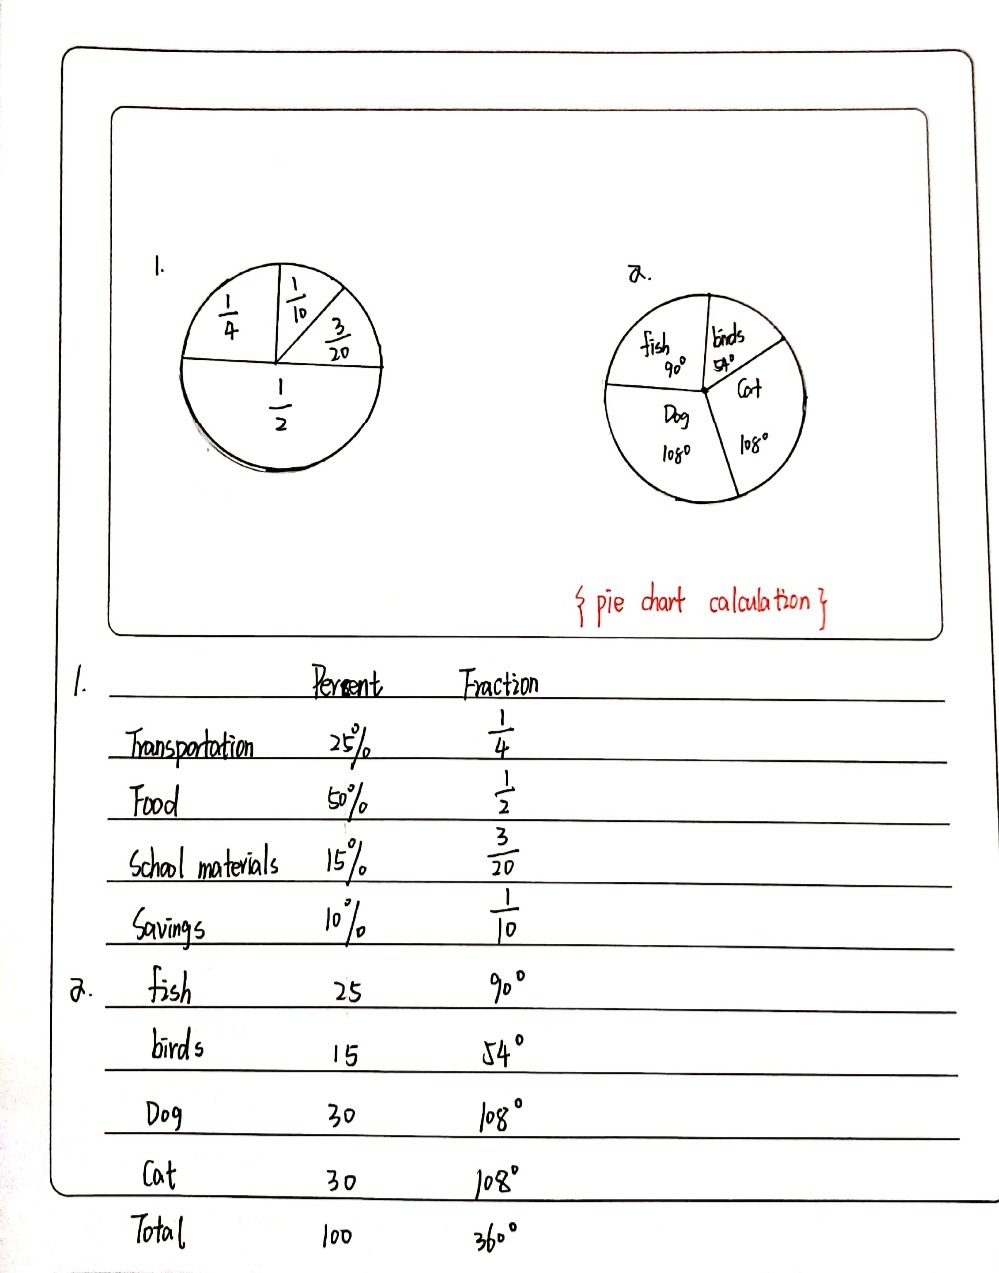 1.
1/4
1/10
3/20
1/2
2.
fish
90°
birds
54°
Cat
108°
Dog
108°
{ pie chart calculation }
1. Percent Fraction
Transportation 25% 1/4
Food 50% 1/2
School materials 15% 3/20
Savings 10% 1/10
2. fish 25 90°
birds 15 54°
Dog 30 108°
Cat 30 108°
Total 100 360°